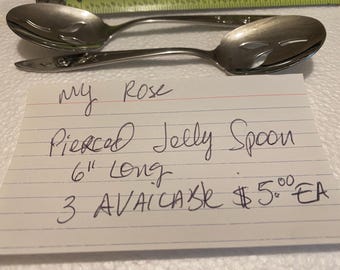 My Rose
Pierced Jelly Spoon
6" Long
3 AVAILABLE $5.00 EA